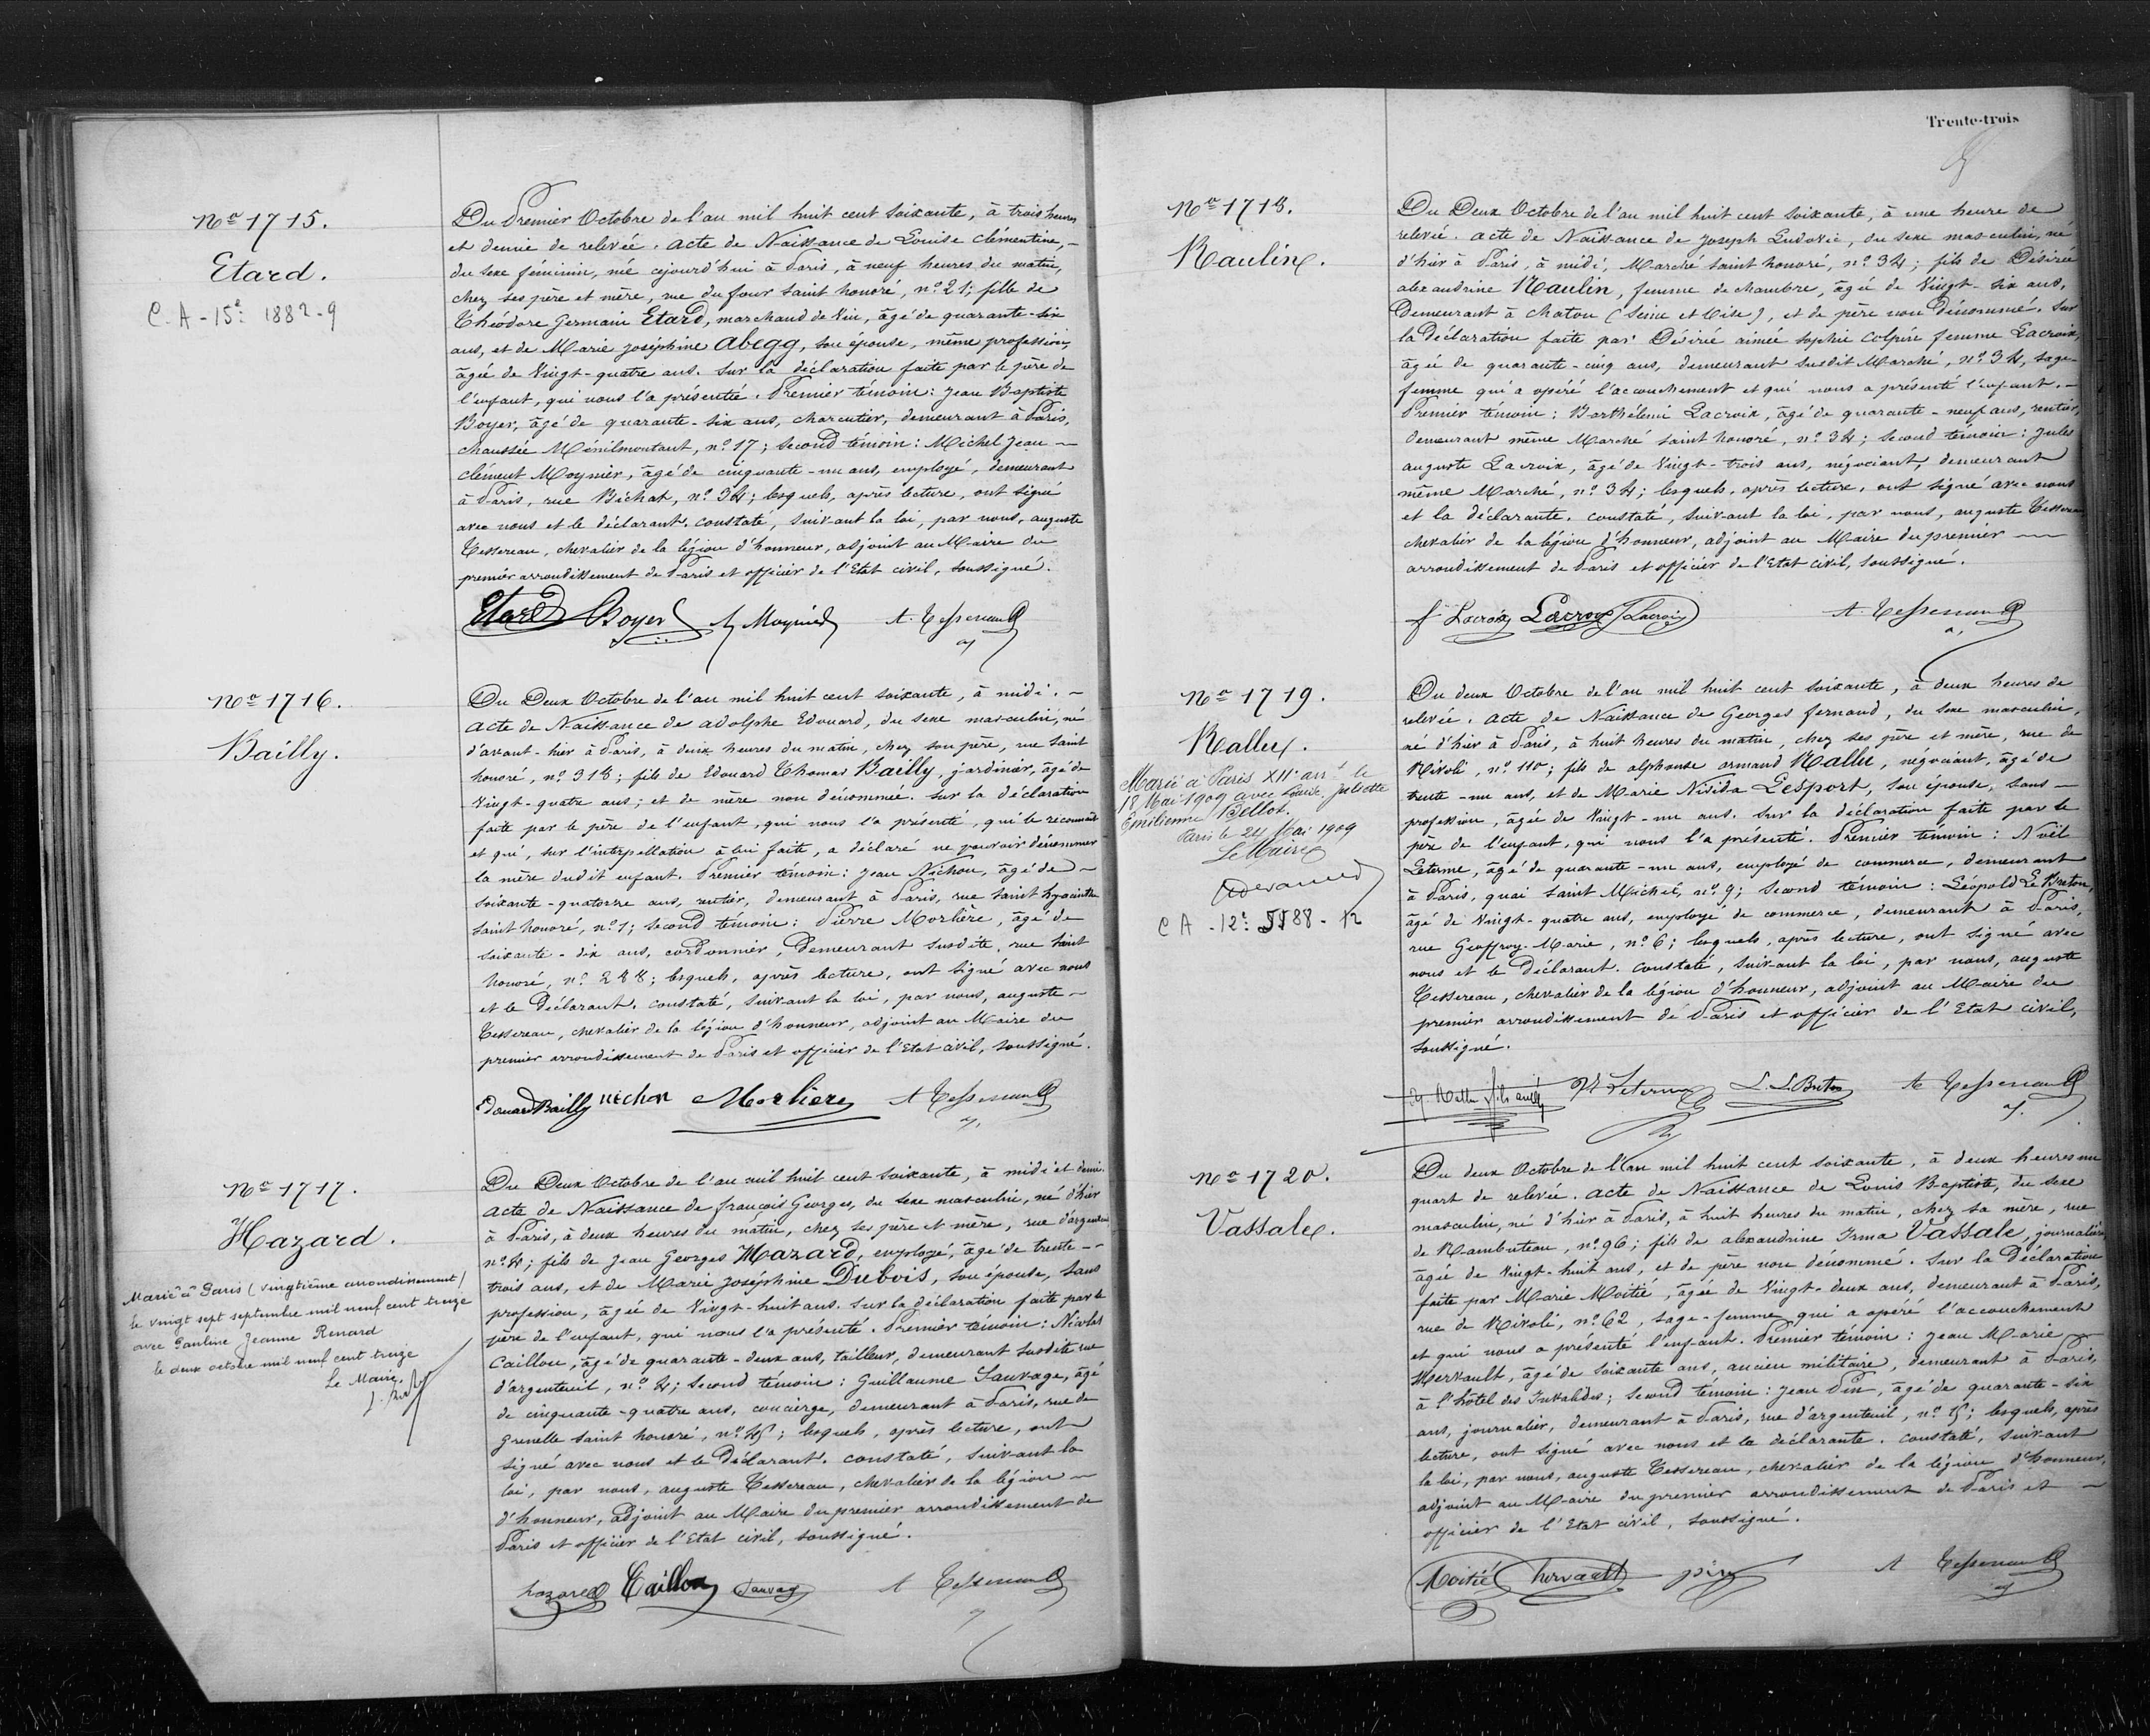 No 1715.
Etard.
C. A - 15e 1882-9
Du Premier Octobre de l'an mil huit cent soixante, à trois heures
et demie de relevée. acte de Naissance de Louise clémentine,
du sexe féminin, née cejourd'hui à Paris, à neuf heures du matin,
chez ses père et mère, rue du four saint honoré, no 21; fille de
Théodore Germain Etard, marchand de Vin, âgé de quarante-six
ans, et de Marie Joséphine Abegg, son épouse, même profession,
âgée de Vingt-quatre ans. Sur la déclaration faite par le père de
l'enfant, qui nous l'a présentée. Premier témoin: Jean Baptiste
Boyer, âgé de quarante-six ans, charcutier, demeurant à Paris,
chaussée Ménilmontant, no 17; second témoin: Michel Jean
clément Moynier, âgé de cinquante-un ans, employé, demeurant
à Paris, rue Bichat, no 34; lesquels, après lecture, ont signé
avec nous et le déclarant. constaté, suivant la loi, par nous, auguste
Tessereau, chevalier de la légion d'honneur, adjoint au Maire du
premier arrondissement de Paris et officier de l'Etat civil, soussigné.
Etard Boyer Moynier A. Tessereau
No 1716.
Bailly.
Du Deux Octobre de l'an mil huit cent soixante, à midi.
acte de Naissance de adolphe Edouard, du sexe masculin, né
d'avant-hier à Paris, à deux heures du matin, chez son père, rue saint
honoré, no 318; fils de Edouard Thomas Bailly, jardinier, âgé de
Vingt-quatre ans; et de mère non dénommée. Sur la déclaration
faite par le père de l'enfant, qui nous l'a présenté, qui le reconnait
et qui, sur l'interpellation à lui faite, a déclaré ne pouvoir dénommer
la mère dudit enfant. Premier témoin: Jean Nichon, âgé de
soixante-quatorze ans, rentier, demeurant à Paris, rue saint hyacinthe
saint honoré, no 1; second témoin: Pierre Morlière, âgé de
soixante-dix ans, cordonnier, demeurant susdite rue saint
honoré, no 288; lesquels, après lecture, ont signé avec nous
et le Déclarant. constaté, suivant la loi, par nous, auguste
Tessereau, chevalier de la légion d'honneur, adjoint au Maire du
premier arrondissement de Paris et officier de l'Etat civil, soussigné.
Edouard Bailly nichon Morliere A Tessereau
No 1717.
Hazard.
Marié à Paris (vingtième arrondissement)
le vingt sept septembre mil neuf cent treize
avec Pauline Jeanne Renard
le deux octobre mil neuf cent treize
Le Maire,
Du Deux Octobre de l'an mil huit cent soixante, à midi et demi.
acte de Naissance de françois Georges, du sexe masculin, né d'hier
à Paris, à deux heures du matin, chez ses père et mère, rue d'argenteuil,
no 4; fils de Jean Georges Hazard, employé, âgé de trente-
trois ans, et de Marie Joséphine Dubois, son épouse, sans
profession, âgée de Vingt-huit ans. Sur la déclaration faite par le
père de l'enfant, qui nous l'a présenté. Premier témoin: Nicolas
Caillou, âgé de quarante-deux ans, tailleur, demeurant susdite rue
d'argenteuil, no 4; second témoin: Guillaume Sauvage, âgé
de cinquante-quatre ans, concierge, demeurant à Paris, rue de
grenelle saint honoré, no 45; lesquels, après lecture, ont
signé avec nous et le Déclarant. constaté, suivant la
loi, par nous, auguste Tessereau, chevalier de la légion
d'honneur, adjoint au Maire du premier arrondissement de
Paris et officier de l'Etat civil, soussigné.
hazard Caillou Sauvage A Tessereau
Trente-trois
No 1718.
Raulin.
Du Deux Octobre de l'an mil huit cent soixante, à une heure de
relevée. acte de Naissance de Joseph Ludovic, du sexe masculin, né
d'hier à Paris, à midi, Marché saint honoré, no 34; fils de Désirée
alexandrine Raulin, femme de chambre, âgée de Vingt-six ans,
Demeurant à chatou (Seine et Oise), et de père non Dénommé. Sur
la Déclaration faite par Désirée aimée sophie femme Lacroix,
âgée de quarante-cinq ans, demeurant susdit Marché, no 34, sage-
femme qui a opéré l'accouchement et qui nous a présenté l'enfant.
Premier témoin: Barthélemi Lacroix, âgé de quarante-neuf ans, rentier,
demeurant même Marché saint honoré, no 34; second témoin: Jules
auguste Lacroix, âgé de Vingt-trois ans, négociant, demeurant
même Marché, no 34; lesquels, après lecture, ont signé avec nous
et la déclarante. constaté, suivant la loi, par nous, auguste Tessereau
chevalier de la légion d'honneur, adjoint au Maire du premier
arrondissement de Paris et officier de l'Etat civil, soussigné.
f Lacroix Lacroix J Lacroix A. Tessereau
No 1719.
Rallu.
Marié à Paris XIIe arrt le
18 Mai 1909 avec Louise Juliette
Emilienne Bellot.
Paris le 24 Mai 1909
Le Maire
C A - 12e 1888 - 12
Du deux Octobre de l'an mil huit cent soixante, à deux heures de
relevée. acte de Naissance de Georges fernand, du sexe masculin,
né d'hier à Paris, à huit heures du matin, chez ses père et mère, rue de
Rivoli, no 110; fils de alphonse armand Rallu, négociant, âgé de
trente-un ans, et de Marie Nisida Lesport, son épouse, sans
profession, âgée de Vingt-un ans. Sur la déclaration faite par le
père de l'enfant, qui nous l'a présenté. Premier témoin: Noël
Leterme, âgé de quarante-un ans, employé de commerce, demeurant
à Paris, quai saint Michel, no 9; second témoin: Léopold Le Breton,
âgé de Vingt-quatre ans, employé de commerce, demeurant à Paris,
rue Geoffroy-Marie, no 6; lesquels, après lecture, ont signé avec
nous et le Déclarant. constaté, suivant la loi, par nous, auguste
Tessereau, chevalier de la légion d'honneur, adjoint au Maire du
premier arrondissement de Paris et officier de l'Etat civil,
soussigné.
Rallu fils Leterme L. Le Breton A Tessereau
No 1720.
Vassale.
Du deux Octobre de l'an mil huit cent soixante, à deux heures un
quart de relevée. acte de Naissance de Louis Baptiste, du sexe
masculin, né d'hier à Paris, à huit heures du matin, chez sa mère, rue
de Rambuteau, no 96; fils de alexandrine Irma Vassale, journalière,
âgée de Vingt-huit ans, et de père non dénommé. Sur la Déclaration
faite par Marie Moitié, âgée de Vingt-deux ans, demeurant à Paris,
rue de Rivoli, no 62, sage-femme qui a opéré l'accouchement
et qui nous a présenté l'enfant. Premier témoin: Jean Marie
Hervault, âgé de soixante ans, ancien militaire, demeurant à Paris,
à l'hôtel des Invalides; second témoin: Jean Pin, âgé de quarante-six
ans, journalier, demeurant à Paris, rue d'argenteuil, no 15; lesquels, après
lecture, ont signé avec nous et la déclarante. constaté, suivant
la loi, par nous, auguste Tessereau, chevalier de la légion d'honneur,
adjoint au Maire du premier arrondissement de Paris et
officier de l'Etat civil, soussigné.
Moitié hervault pin A Tessereau